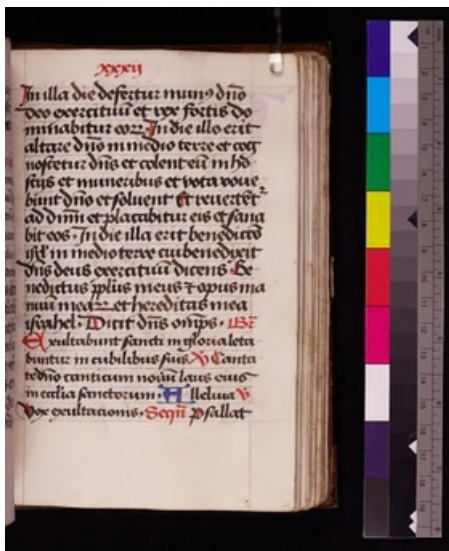 xxxij
In illa die defertur mun9 dño
deo exercituū et rex fortis do
minabitur eoꝝ In die illo erit
altare dño in medio terre et cog
noscetur dñs et colent eū in ho
stijs et muneribus et vota voue
bunt dño et soluent Et reuertēt~
ad dnm̄ et placabitur eis et sana
bit eos · In die illa erit benedictō
isrl̄ in medio terre cui benedixit
dñs deus exercituū dicens · Be
nedictus ppl̄us meus ⁊ opus ma
nuū meaꝝ et hereditas mea
israhel · Dicit dñs omps · Br̄
Exultabunt sancti in gloria leta
buntur in cubilibus suis V Canta
te dño canticum nouū laus eius
in ecclīa sanctorum · Alleluia V
Vox exultacionis · Seqn̄ Psallat